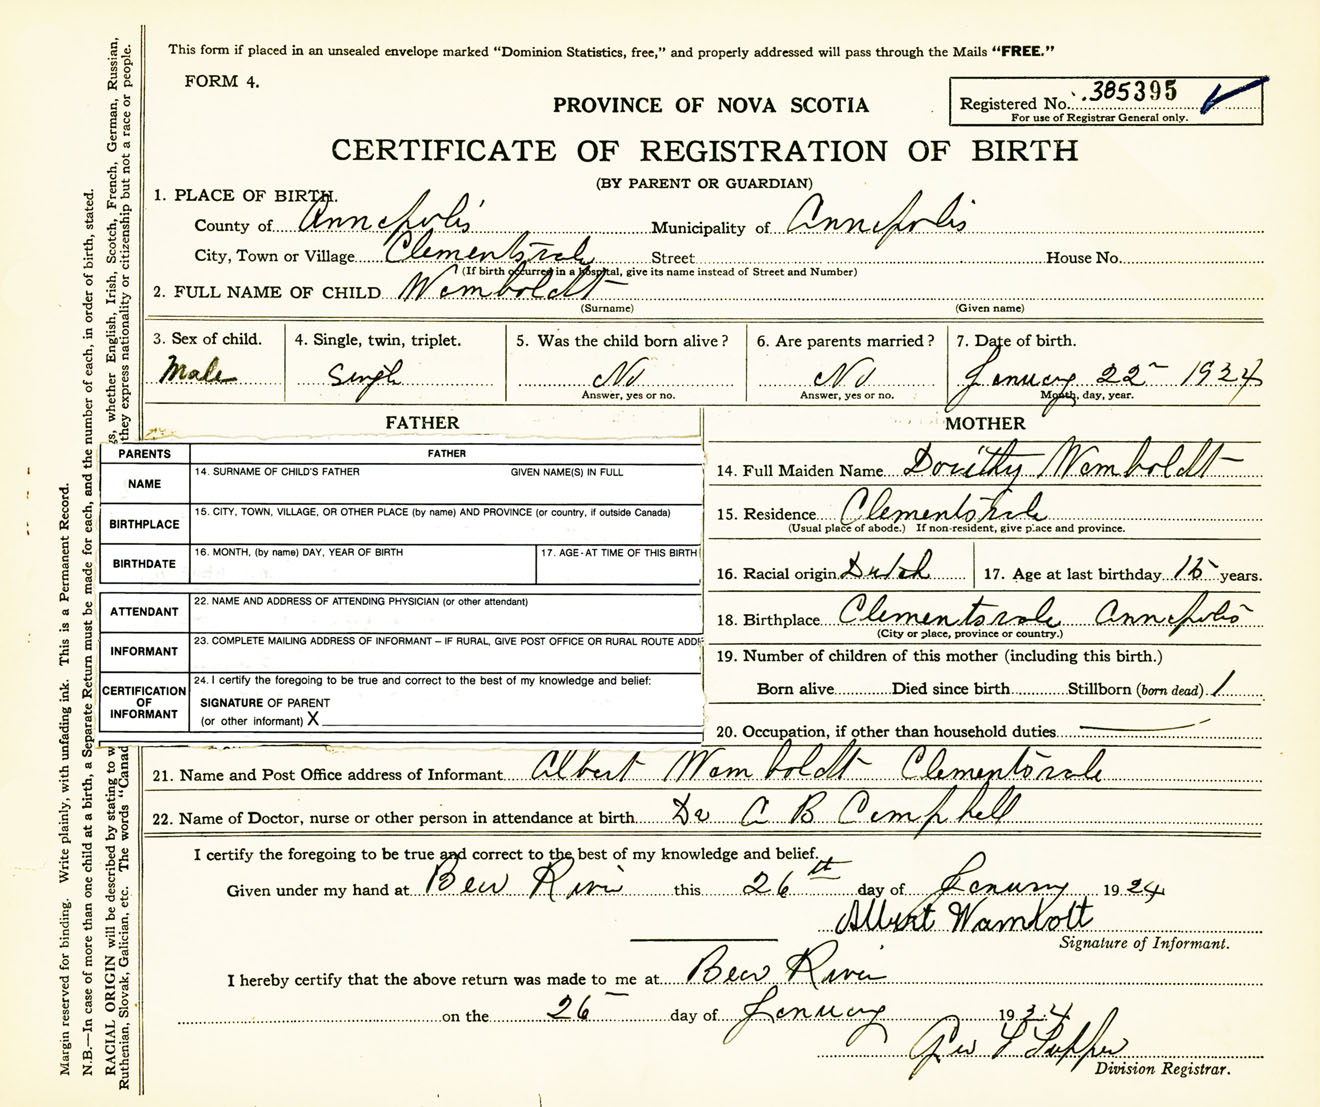 This form if placed in an unsealed envelope marked “Dominion Statistics, free,” and properly addressed will pass through the Mails “FREE.”
FORM 4.
Registered No. 385395
For use of Registrar General only.
PROVINCE OF NOVA SCOTIA
CERTIFICATE OF REGISTRATION OF BIRTH
(BY PARENT OR GUARDIAN)
1. PLACE OF BIRTH.
County of Annapolis Municipality of Annapolis
City, Town or Village Clementsvale Street House No.
(If birth occurred in a hospital, give its name instead of Street and Number)
2. FULL NAME OF CHILD Wamboldt
(Surname) (Given name)
3. Sex of child. 4. Single, twin, triplet. 5. Was the child born alive? 6. Are parents married? 7. Date of birth.
Male Single No No January 22 1924
Answer, yes or no. Answer, yes or no. Month, day, year.
FATHER
PARENTS FATHER
NAME 14. SURNAME OF CHILD'S FATHER GIVEN NAME(S) IN FULL
BIRTHPLACE 15. CITY, TOWN, VILLAGE, OR OTHER PLACE (by name) AND PROVINCE (or country, if outside Canada)
BIRTHDATE 16. MONTH, (by name) DAY, YEAR OF BIRTH 17. AGE - AT TIME OF THIS BIRTH
ATTENDANT 22. NAME AND ADDRESS OF ATTENDING PHYSICIAN (or other attendant)
INFORMANT 23. COMPLETE MAILING ADDRESS OF INFORMANT – IF RURAL, GIVE POST OFFICE OR RURAL ROUTE
CERTIFICATION OF INFORMANT 24. I certify the foregoing to be true and correct to the best of my knowledge and belief:
SIGNATURE OF PARENT
(or other informant) X
MOTHER
14. Full Maiden Name Dorithy Wamboldt
15. Residence Clementsvale
(Usual place of abode.) If non-resident, give place and province.
16. Racial origin Dutch 17. Age at last birthday 15 years.
18. Birthplace Clementsvale Annapolis
(City or place, province or country.)
19. Number of children of this mother (including this birth.)
Born alive Died since birth Stillborn (born dead) 1
20. Occupation, if other than household duties
21. Name and Post Office address of Informant Albert Wamboldt Clementsvale
22. Name of Doctor, nurse or other person in attendance at birth Dr A B Campbell
I certify the foregoing to be true and correct to the best of my knowledge and belief.
Given under my hand at Bear River this 26th day of January 1924
Albert Wambolt
Signature of Informant.
I hereby certify that the above return was made to me at Bear River
on the 26 day of January 1924
Geo L Tupper
Division Registrar.
Margin reserved for binding. Write plainly, with unfading ink. This is a Permanent Record.
N.B.—In case of more than one child at a birth, a Separate Return must be made for each, and the number of each, in order of birth, stated.
RACIAL ORIGIN will be described by stating to whether English, Irish, Scotch, French, German, Russian,
Ruthenian, Slovak, Galician, etc. The words "Canad they express nationality or citizenship but not a race or people.